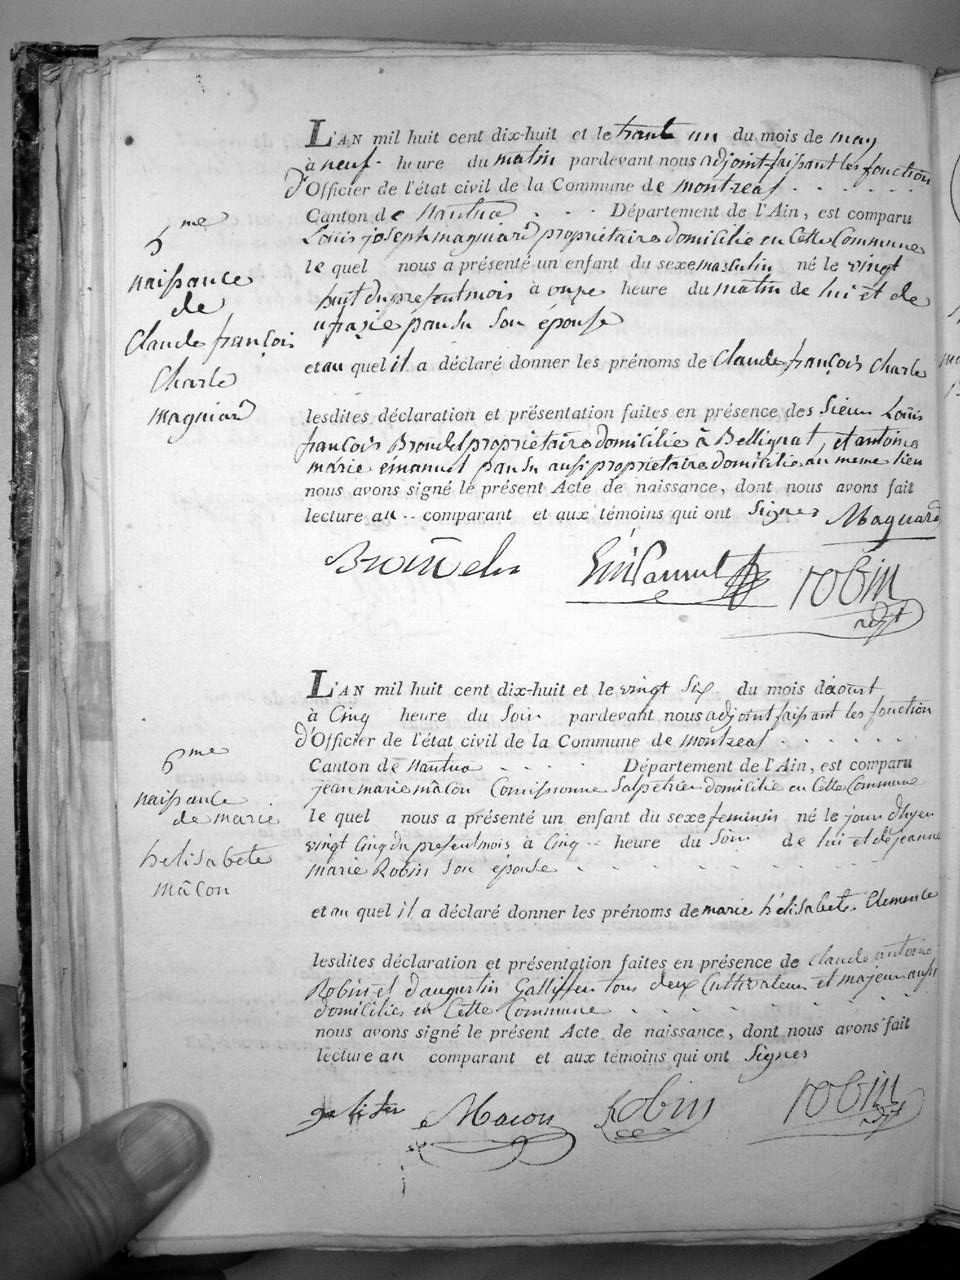 L'AN mil huit cent dix-huit et le trante un du mois de may
à neuf heure du matin pardevant nous adjoint faisant les fonction
d'Officier de l'état civil de la Commune de montreal
Canton de Nantua Département de l'Ain, est comparu
Louis joseph magniard propriétaire domicilié en Cette Commune
le quel nous a présenté un enfant du sexe masculin né le vingt
huit du present mois à onze heure du matin de lui et de
son épouse
et au quel il a déclaré donner les prénoms de Claude françois Charle
lesdites déclaration et présentation faites en présence des Sieur Louis
françois propriétaire domicilié à Bellignat, et antoine
marie emanuel aussi propriétaire domicilié au meme lieu
nous avons signé le présent Acte de naissance, dont nous avons fait
lecture au comparant et aux témoins qui ont Signes Maguard
robin
adjt
6me
naissance
de
Claude françois
Charle
magniard
L'AN mil huit cent dix-huit et le vingt Six du mois d'aoust
à Cinq heure du Soir pardevant nous adjoint faisant les fonction
d'Officier de l'état civil de la Commune de montreal
Canton de Nantua Département de l'Ain, est comparu
jean marie macon Salpetrier domicilié en Cette Commune
le quel nous a présenté un enfant du sexe feminin né le jour d'hyer
vingt Cinq du present mois à Cinq heure du Soir de lui et de jeanne
marie Robin Son épouse
et au quel il a déclaré donner les prénoms de marie hélisabete Clemence
lesdites déclaration et présentation faites en présence de claude antoine
Robin et d'augustin Galliffet tous deux Cultivateur et majeur aussi
domiciliés en Cette Commune
nous avons signé le présent Acte de naissance, dont nous avons fait
lecture au comparant et aux témoins qui ont Signes
Macon Robin robin
adjt
6me
naissance
de marie
hélisabete
mâcon